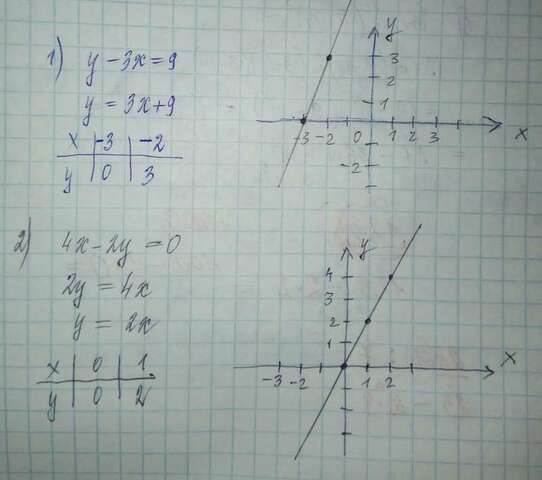 1) y - 3x = 9
y = 3x + 9
x | -3 | -2
y | 0 | 3
y
3
2
1
-3 -2 0 1 2 3 x
-2
2) 4x - 2y = 0
2y = 4x
y = 2x
x | 0 | 1
y | 0 | 2
y
4
3
2
1
x
-3 -2 1 2